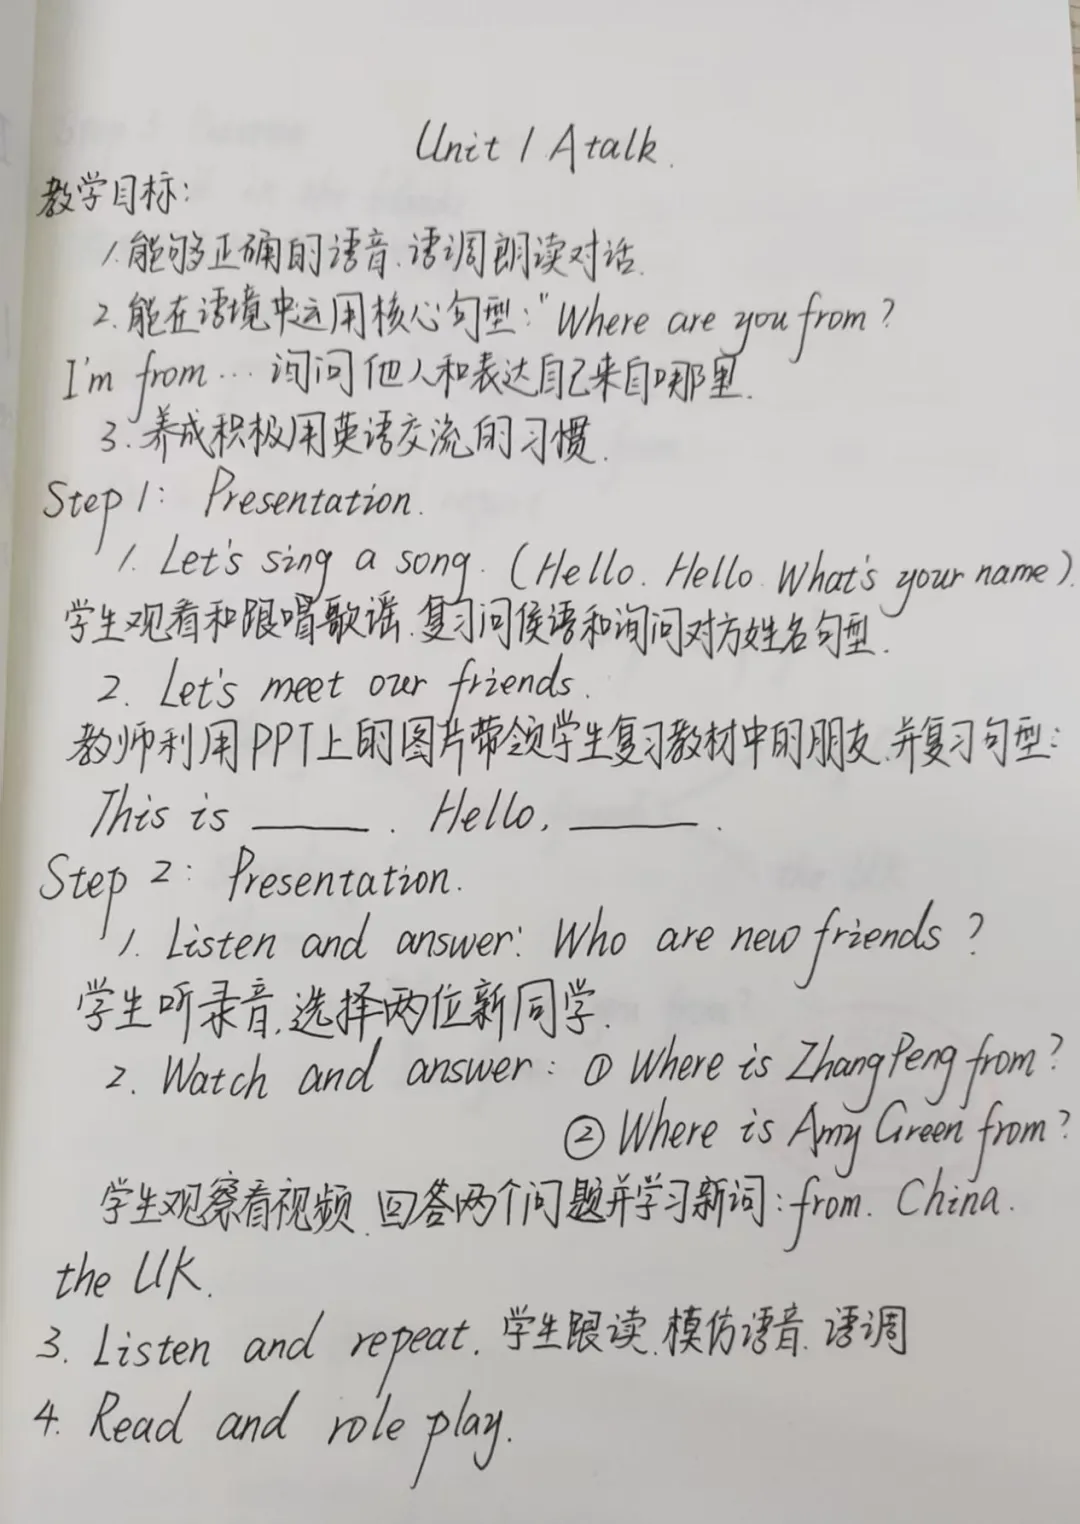 Unit 1 A talk.
教学目标:
1.能够正确的语音、语调朗读对话.
2.能在语境中运用核心句型:"Where are you from?
I'm from … 询问他人和表达自己来自哪里.
3.养成积极用英语交流的习惯.
Step 1: Presentation.
1. Let's sing a song. (Hello. Hello. What's your name).
学生观看和跟唱歌谣.复习问侯语和询问对方姓名句型.
2. Let's meet our friends.
教师利用PPT上的图片带领学生复习教材中的朋友.并复习句型:
This is ____. Hello, ____.
Step 2: Presentation.
1. Listen and answer: Who are new friends?
学生听录音.选择两位新同学.
2. Watch and answer: ① Where is Zhang Peng from?
② Where is Amy Green from?
学生观察看视频.回答两个问题并学习新词:from. China.
the UK.
3. Listen and repeat. 学生跟读.模仿语音.语调
4. Read and role play.